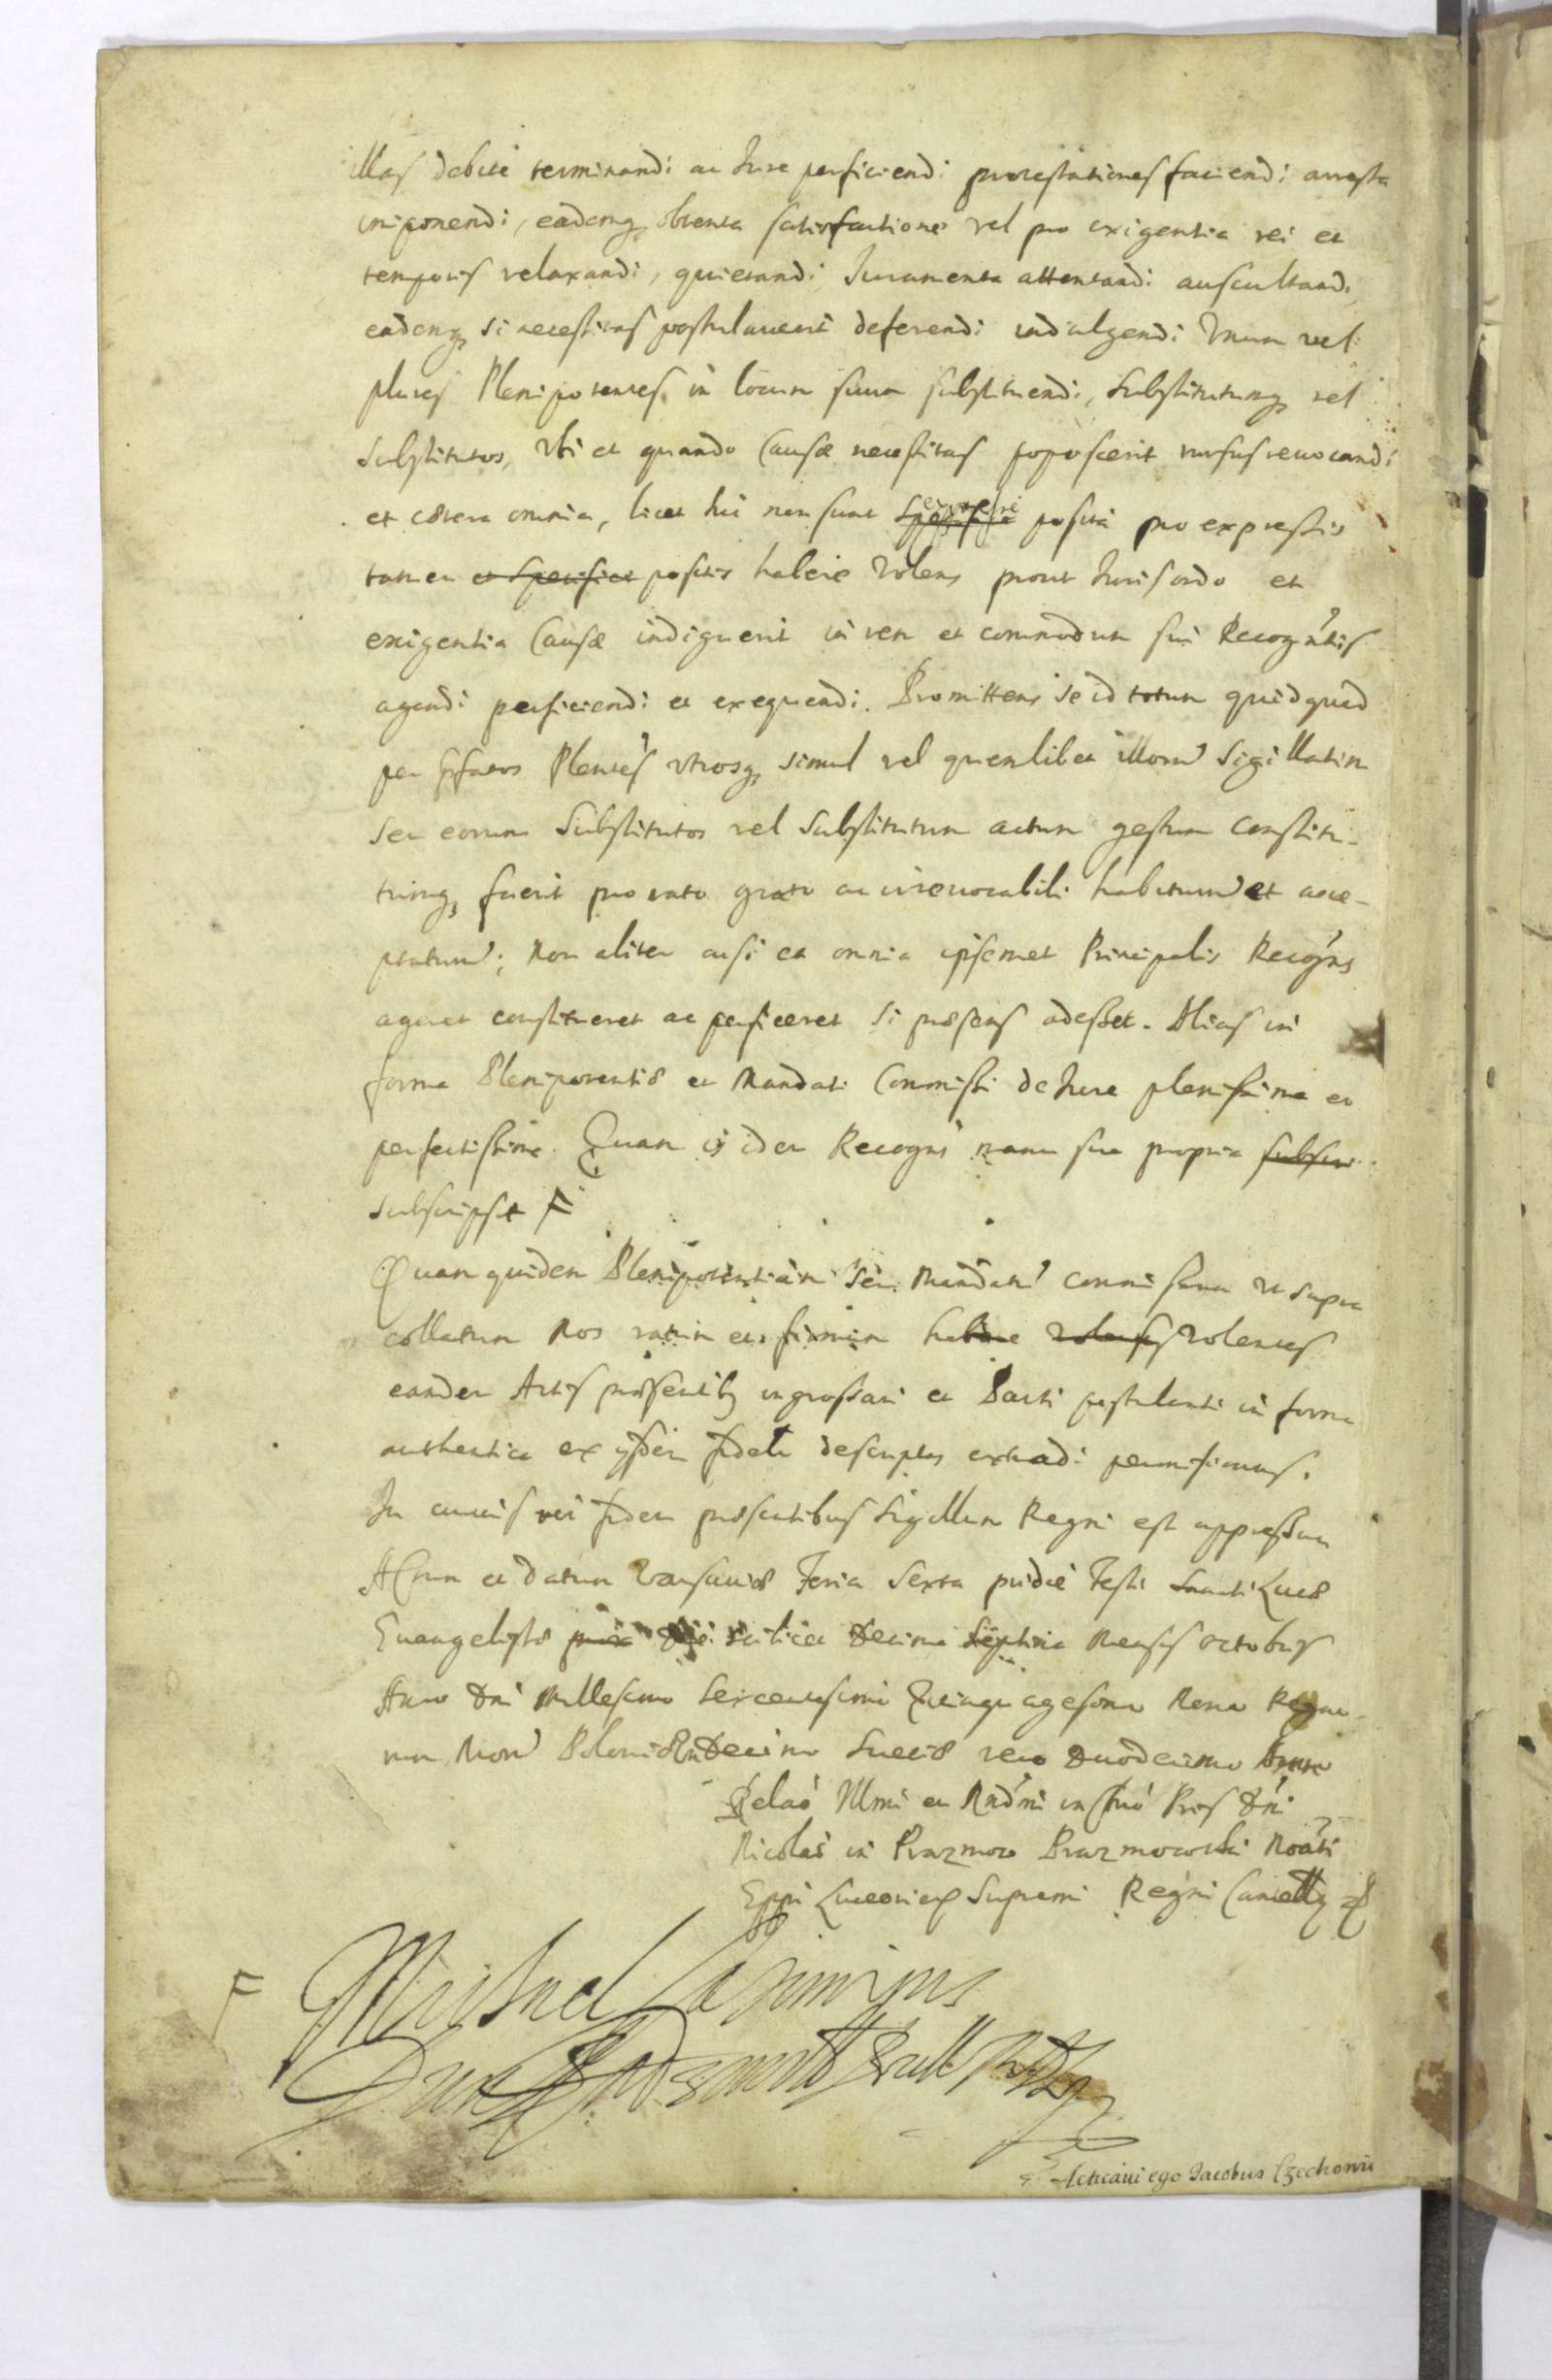 illas debite terminandi ac Jure perficiendi protestationes faciendi arresta
imponendi, eademq obtenta satisfactione vel pro exigentia rei et
temporis relaxandi, quietandi Juramenta attentandi auscultandi,
eademq si necessitas postulaverit deferendi indulgendi Unum vel
plures Plenipotentes in locum suum substituendi, substitutumq vel
substitutos, Ubi et quando Causæ necessitas poposcerit rursus revocandi
et cætera omnia, licet hic non sunt expresse posita pro expressis
tamen et specifice positis habere Volens prout Juris ordo et
exigentia Causæ indiguerit in rem et commodum sui Recogntis
agendi perficiendi et exequendi. Promittens se id totum quidquid
per pfatos Plentes Utrosq simul vel quemlibet illorum sigillatim
seu eorum Substitutos vel Substitutum actum gestum constitu-
tumq fuerit pro rato grato ac irrevocabili habiturum et acce-
ptaturum; Non aliter ac si ea omnia ipsemet Principalis Recogns
ageret constitueret ac perficeret si præsens adesset. Alias in
forma Plenipotentiæ et Mandati Commissi de Jure plenissima et
perfectissima. Quam is idem Recogns manu sua propria subscri
subscripsit F
Quam quidem Plenipotentiam seu Mandatum commissum ut supra
collatum Nos ratum et firmum habere volentes Volentes
eandem Actis præsentib ingrossari et Parti postulanti in forma
authentica ex ijsdem fideli descriptos extradi permisimus.
In cuius rei fidem præsentibus Sigillum Regni est appressum
Actum et datum Varsaviæ Feria Sexta pridie Festi Sancti Lucæ
Evangelistæ die scilicet Decima Septima Mensis Octobris
Anno Dni Millesimo Sexcentesimo Quinquagesimo Nono Regno-
rum Nrorum Poloniæ Undecimo Sueciæ vero Duodecimo Anno
Relaô Illmi et Rndmi in Chrô Pris Dni
Nicolai in Prazmow Prazmowski Noâti
Eppi Luceorien Supremi Regni Cancellarij
F Michael Casimirus
Acticavi ego Jacobus Czechowic